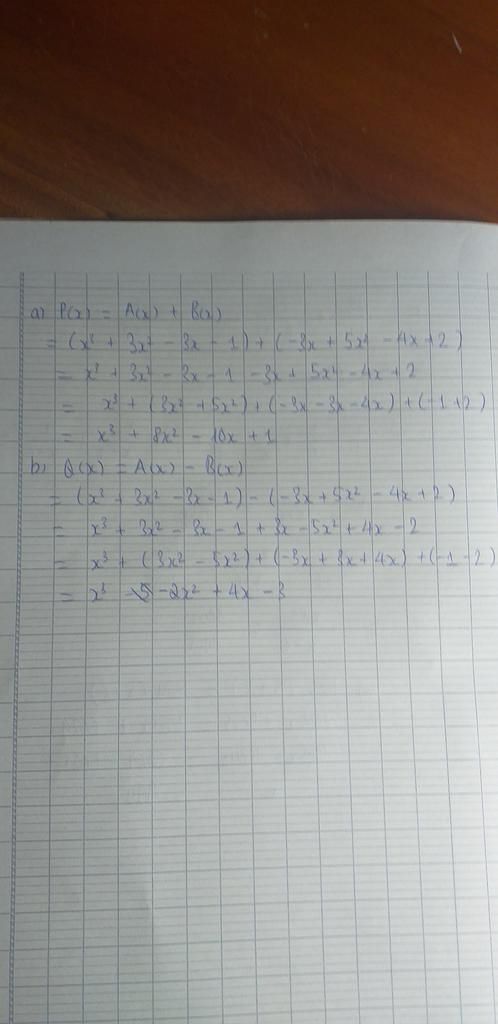 a) P(x) = A(x) + B(x)
= (x³ + 3x² - 3x - 1) + (-3x + 5x² - 4x + 2)
= x³ + 3x² - 3x - 1 - 3x + 5x² - 4x + 2
= x³ + (3x² + 5x²) + (-3x - 3x - 4x) + (-1 + 2)
= x³ + 8x² - 10x + 1
b) Q(x) = A(x) - B(x)
= (x³ + 3x² - 3x - 1) - (-3x + 5x² - 4x + 2)
= x³ + 3x² - 3x - 1 + 3x - 5x² + 4x - 2
= x³ + (3x² - 5x²) + (-3x + 3x + 4x) + (-1 - 2)
= x³ - 2x² + 4x - 3